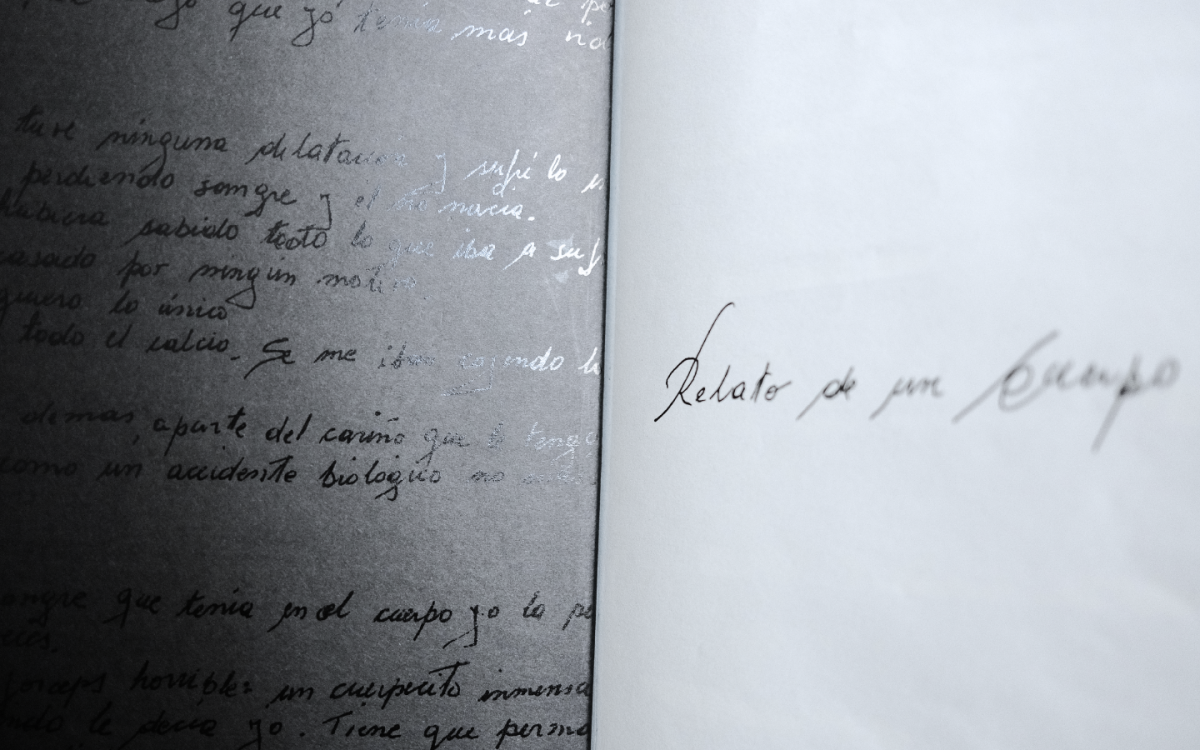 que yó tenía más
ture ninguna delatacion y sufrí lo
perdiendo sangre y el no nacia.
hubiera sabido todo lo que iba a suf
casado por ningún motivo.
quiero lo único
todo el calcio. Se me iban cojendo
demas, aparte del cariño que le tengo
como un accidente biológico no
angre que tenia en el cuerpo yo la pe
eces.
forceps horribles un cuerpecito inmenso
ndo le decía yo. Tiene que perma
Relato de un Cuerpo